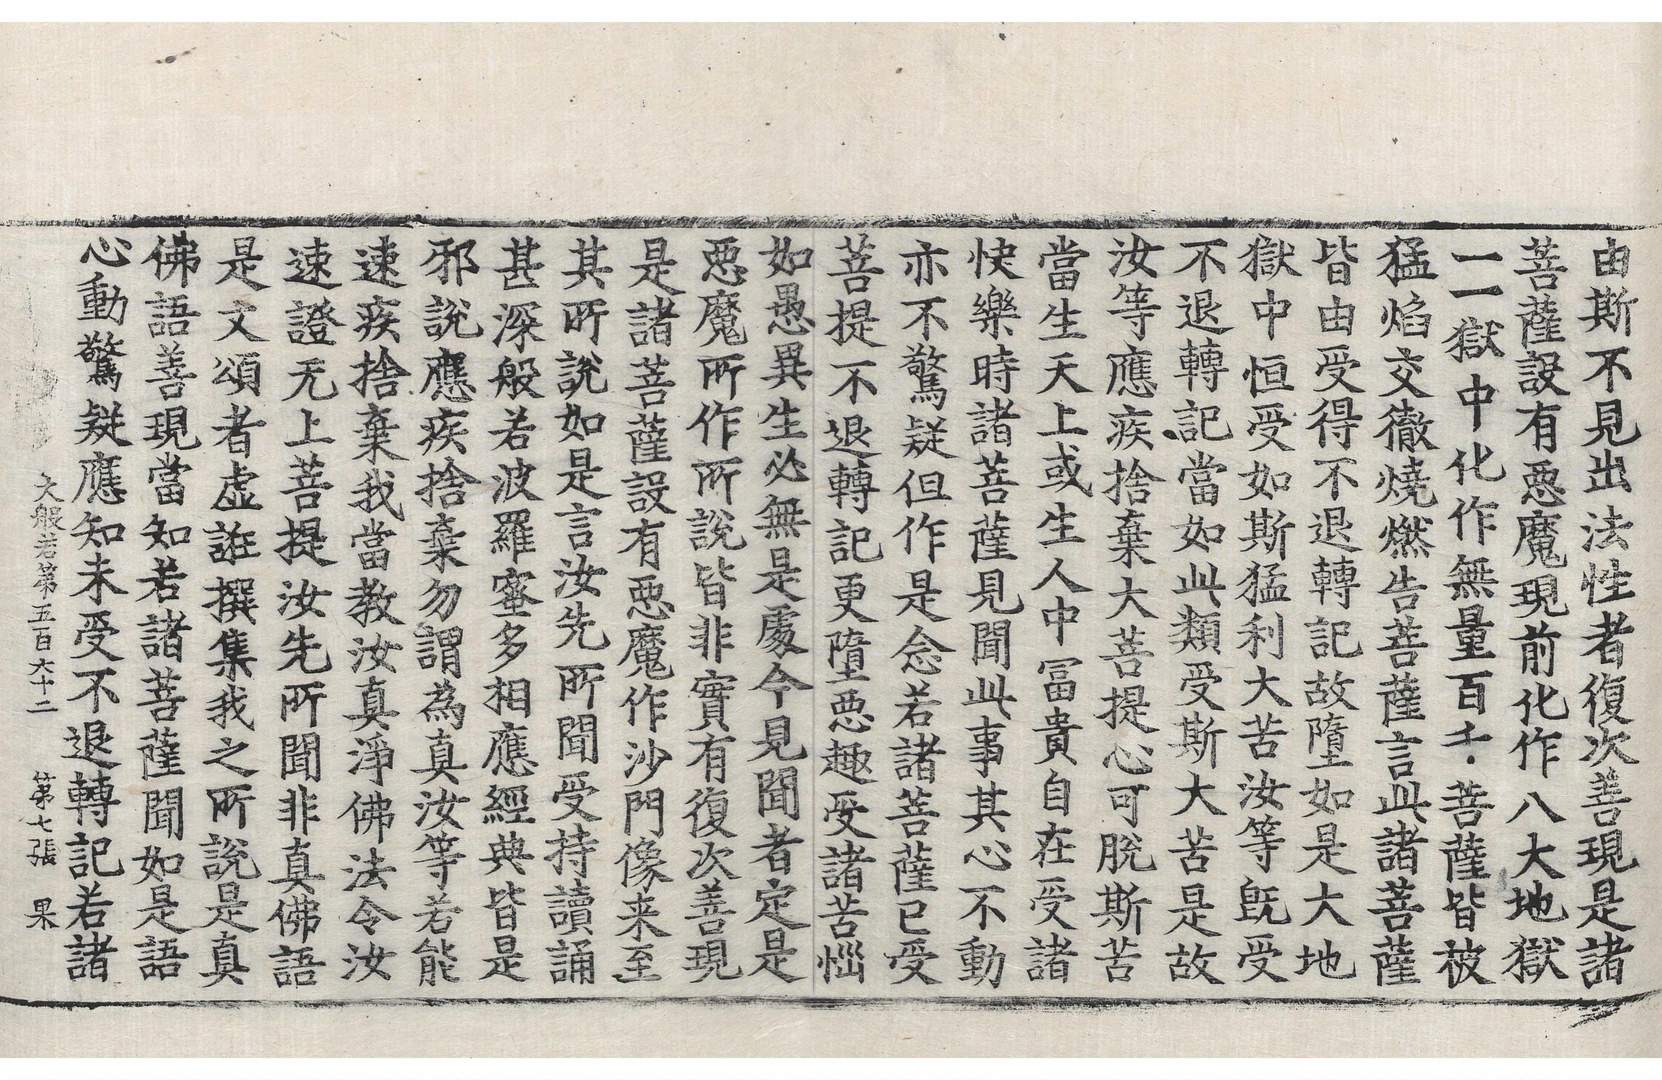 由斯不見出法性者復次善現是諸
菩薩設有惡魔現前化作八大地獄
一一獄中化作無量百千菩薩皆被
猛焰交徹燒燃告菩薩言此諸菩薩
皆由受得不退轉記故墮如是大地
獄中恒受如斯猛利大苦汝等既受
不退轉記當如此類受斯大苦是故
汝等應疾捨棄大菩提心可脫斯苦
當生天上或生人中冨貴自在受諸
快樂時諸菩薩見聞此事其心不動
亦不驚疑但作是念若諸菩薩已受
菩提不退轉記更墮惡趣受諸苦惱
如愚異生必無是處今見聞者定是
惡魔所作所說皆非實有復次善現
是諸菩薩設有惡魔作沙門像来至
其所說如是言汝先所聞受持讀誦
甚深般若波羅蜜多相應經典皆是
邪說應疾捨棄勿謂為真汝等若能
速疾捨棄我當教汝真淨佛法令汝
速證无上菩提汝先所聞非真佛語
是文頌者虛誑撰集我之所說是真
佛語善現當知若諸菩薩聞如是語
心動驚疑應知未受不退轉記若諸
大般若第五百六十二 第七張 果